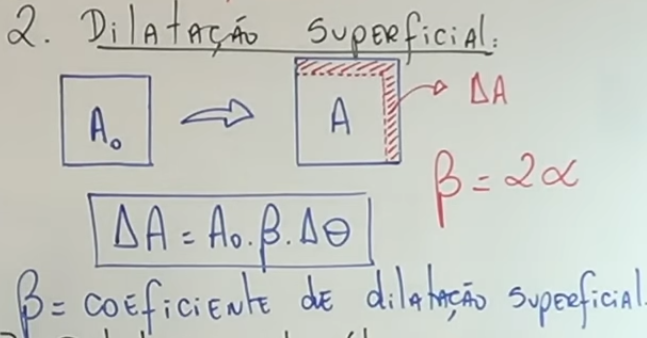 2. Dilatação Superficial:
A₀
A
ΔA
β = 2α
ΔA = A₀.β.Δθ
β = coeficiente de dilatação superficial.